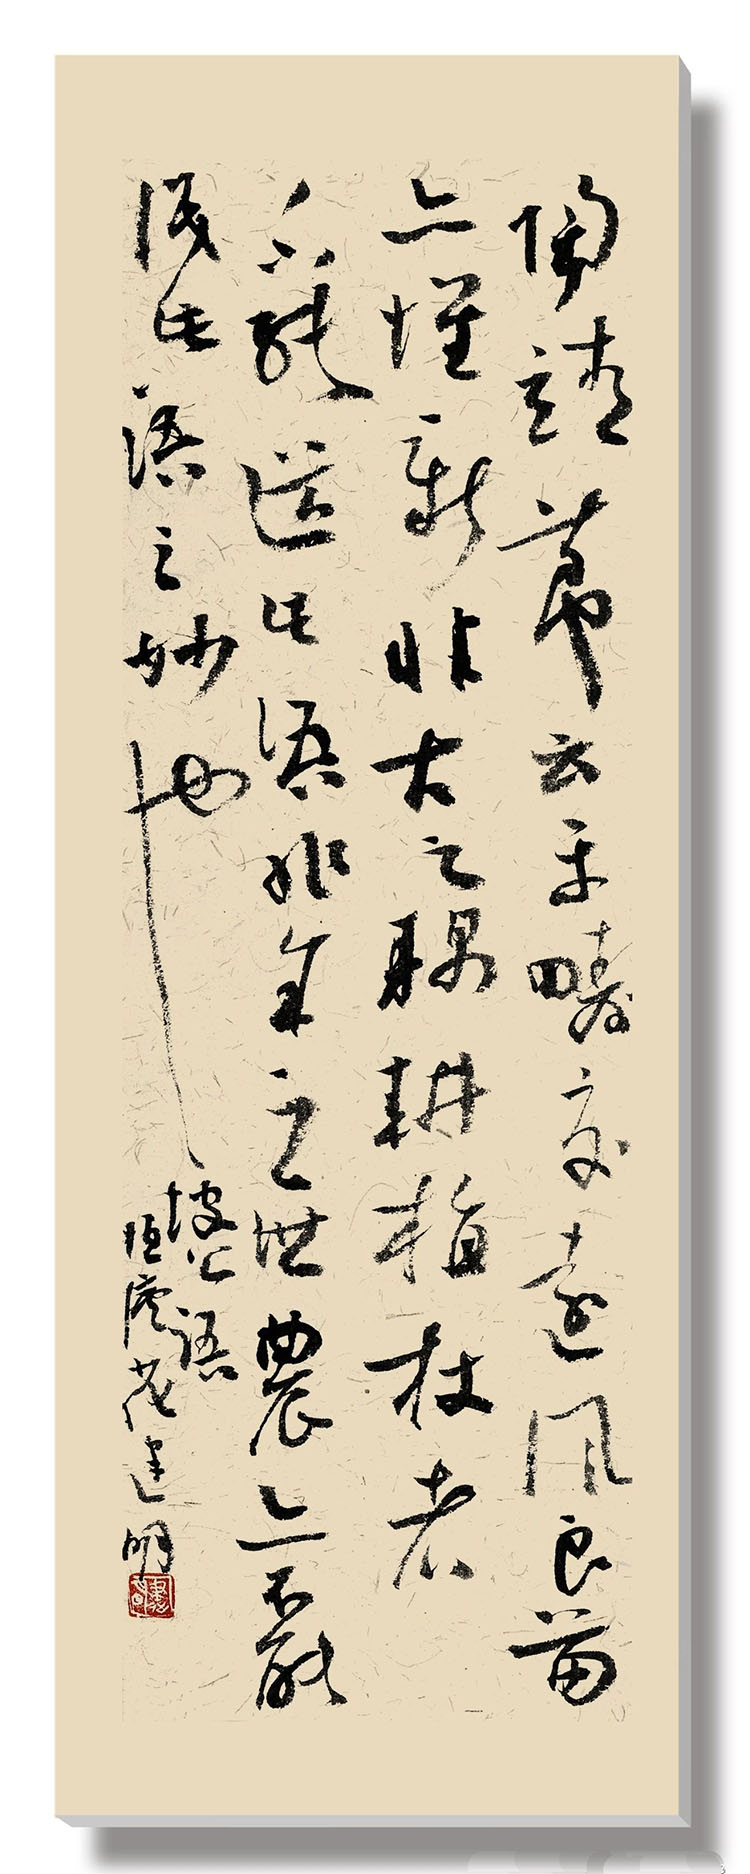 陶靖節云平疇交遠風良苗
亦懷新非古之耦耕植杖者
不能道此語非余之世農亦不能
識此語之妙也
坡公語
恒廬 建明